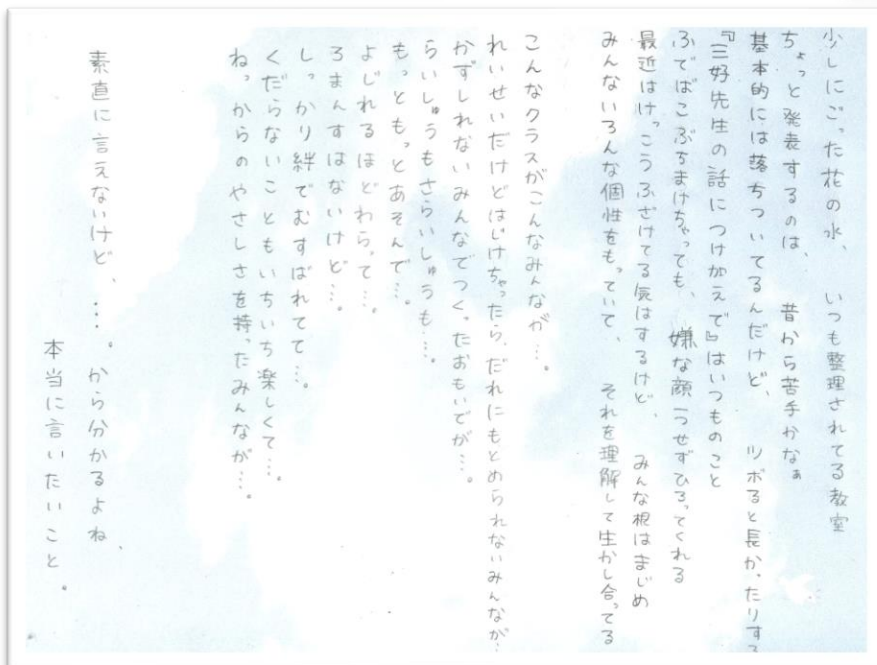 少しにごった花の水、　いつも整理されてる教室
ちょっと発表するのは、　昔から苦手かなぁ
基本的には落ちついてるんだけど、　ツボると長かったりする
『三好先生の話につけかえで』はいつものこと
ふでばこぶちまけちゃっても、　嫌な顔一つせずひろってくれる
最近はけっこうふざけてる気はするけど、　みんな根はまじめ
みんないろんな個性をもっていて、　それを理解して生かし合ってる
こんなクラスがこんなみんなが…。
れいせいだけどはじけちゃったら、だれにもとめられないみんなが…
かずしれないみんなでつくったおもいでが…。
らいしゅうもさらいしゅうも…。
もっともっとあそんで…。
よじれるほどわらって…。
ろまんすはないけど…。
しっかり絆でむすばれてて…。
くだらないこともいちいち楽しくて…。
ねっからのやさしさを持ったみんなが…。
素直に言えないけど、…。から分かるよね、
本当に言いたいこと。